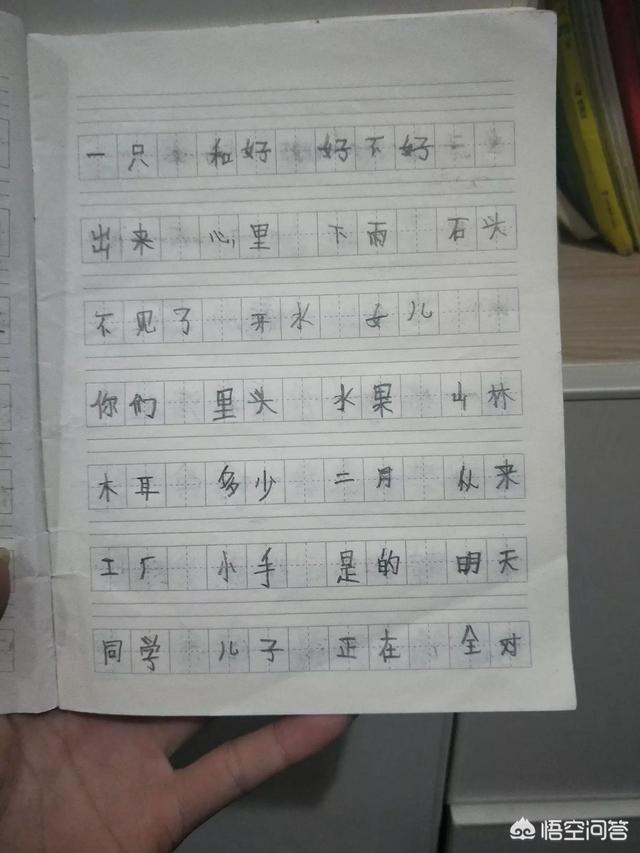 一只 和好 好不好
出来 心里 下雨 石头
不见了 开水 女儿
你们 里头 水果 山林
木耳 多少 二月 从来
工厂 小手 是的 明天
同学 儿子 正在 全对
悟空问答